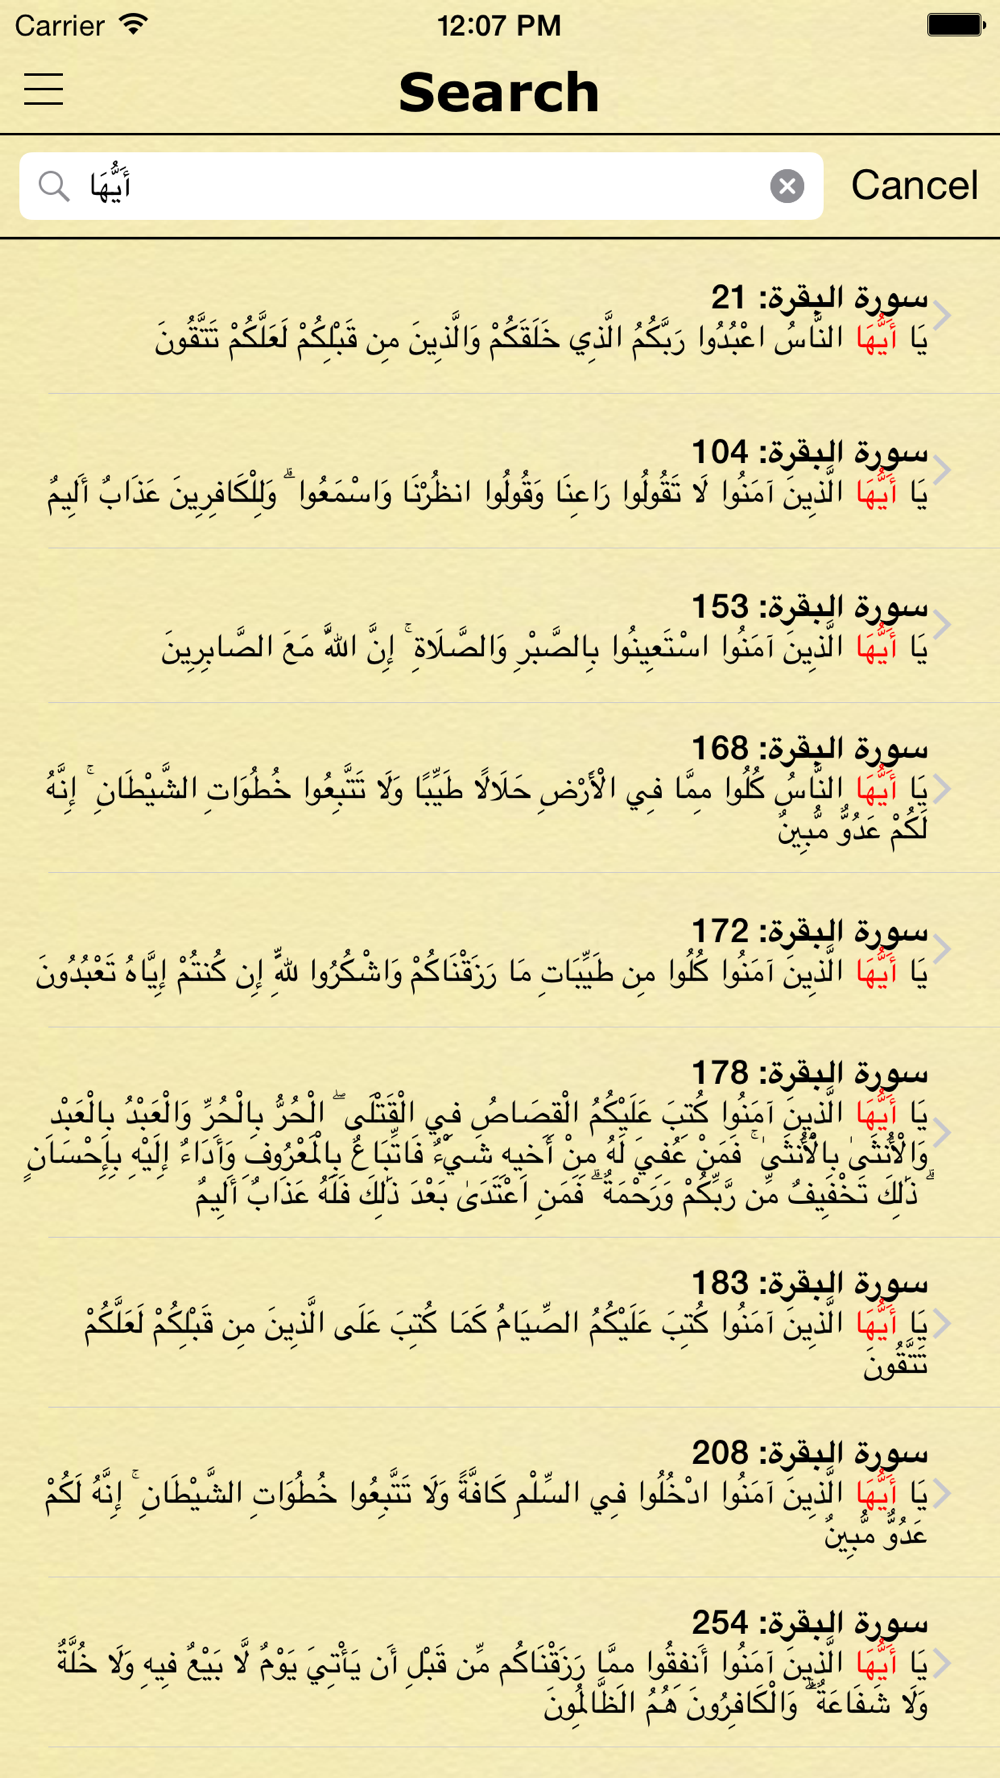 Carrier 12:07 PM
Search
أَيُّهَا Cancel
سورة البقرة: 21
يَا أَيُّهَا النَّاسُ اعْبُدُوا رَبَّكُمُ الَّذِي خَلَقَكُمْ وَالَّذِينَ مِن قَبْلِكُمْ لَعَلَّكُمْ تَتَّقُونَ
سورة البقرة: 104
يَا أَيُّهَا الَّذِينَ آمَنُوا لَا تَقُولُوا رَاعِنَا وَقُولُوا انظُرْنَا وَاسْمَعُوا ۗ وَلِلْكَافِرِينَ عَذَابٌ أَلِيمٌ
سورة البقرة: 153
يَا أَيُّهَا الَّذِينَ آمَنُوا اسْتَعِينُوا بِالصَّبْرِ وَالصَّلَاةِ ۚ إِنَّ اللَّهَ مَعَ الصَّابِرِينَ
سورة البقرة: 168
يَا أَيُّهَا النَّاسُ كُلُوا مِمَّا فِي الْأَرْضِ حَلَالًا طَيِّبًا وَلَا تَتَّبِعُوا خُطُوَاتِ الشَّيْطَانِ ۚ إِنَّهُ
لَكُمْ عَدُوٌّ مُّبِينٌ
سورة البقرة: 172
يَا أَيُّهَا الَّذِينَ آمَنُوا كُلُوا مِن طَيِّبَاتِ مَا رَزَقْنَاكُمْ وَاشْكُرُوا لِلَّهِ إِن كُنتُمْ إِيَّاهُ تَعْبُدُونَ
سورة البقرة: 178
يَا أَيُّهَا الَّذِينَ آمَنُوا كُتِبَ عَلَيْكُمُ الْقِصَاصُ فِي الْقَتْلَى ۖ الْحُرُّ بِالْحُرِّ وَالْعَبْدُ بِالْعَبْدِ
وَالْأُنثَىٰ بِالْأُنثَىٰ ۚ فَمَنْ عُفِيَ لَهُ مِنْ أَخِيهِ شَيْءٌ فَاتِّبَاعٌ بِالْمَعْرُوفِ وَأَدَاءٌ إِلَيْهِ بِإِحْسَانٍ
ۗ ذَٰلِكَ تَخْفِيفٌ مِّن رَّبِّكُمْ وَرَحْمَةٌ ۗ فَمَنِ اعْتَدَىٰ بَعْدَ ذَٰلِكَ فَلَهُ عَذَابٌ أَلِيمٌ
سورة البقرة: 183
يَا أَيُّهَا الَّذِينَ آمَنُوا كُتِبَ عَلَيْكُمُ الصِّيَامُ كَمَا كُتِبَ عَلَى الَّذِينَ مِن قَبْلِكُمْ لَعَلَّكُمْ
تَتَّقُونَ
سورة البقرة: 208
يَا أَيُّهَا الَّذِينَ آمَنُوا ادْخُلُوا فِي السِّلْمِ كَافَّةً وَلَا تَتَّبِعُوا خُطُوَاتِ الشَّيْطَانِ ۚ إِنَّهُ لَكُمْ
عَدُوٌّ مُّبِينٌ
سورة البقرة: 254
يَا أَيُّهَا الَّذِينَ آمَنُوا أَنفِقُوا مِمَّا رَزَقْنَاكُم مِّن قَبْلِ أَن يَأْتِيَ يَوْمٌ لَّا بَيْعٌ فِيهِ وَلَا خُلَّةٌ
وَلَا شَفَاعَةٌ ۗ وَالْكَافِرُونَ هُمُ الظَّالِمُونَ